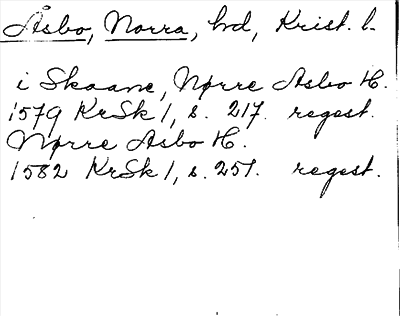 Åsbo, Norra, hd, Krist. l.
i Skaane, Nørre Asbo H.
1579 KrSk 1, s. 217. regest.
Nørre Asbo H.
1582 KrSk 1, s. 251. regest.